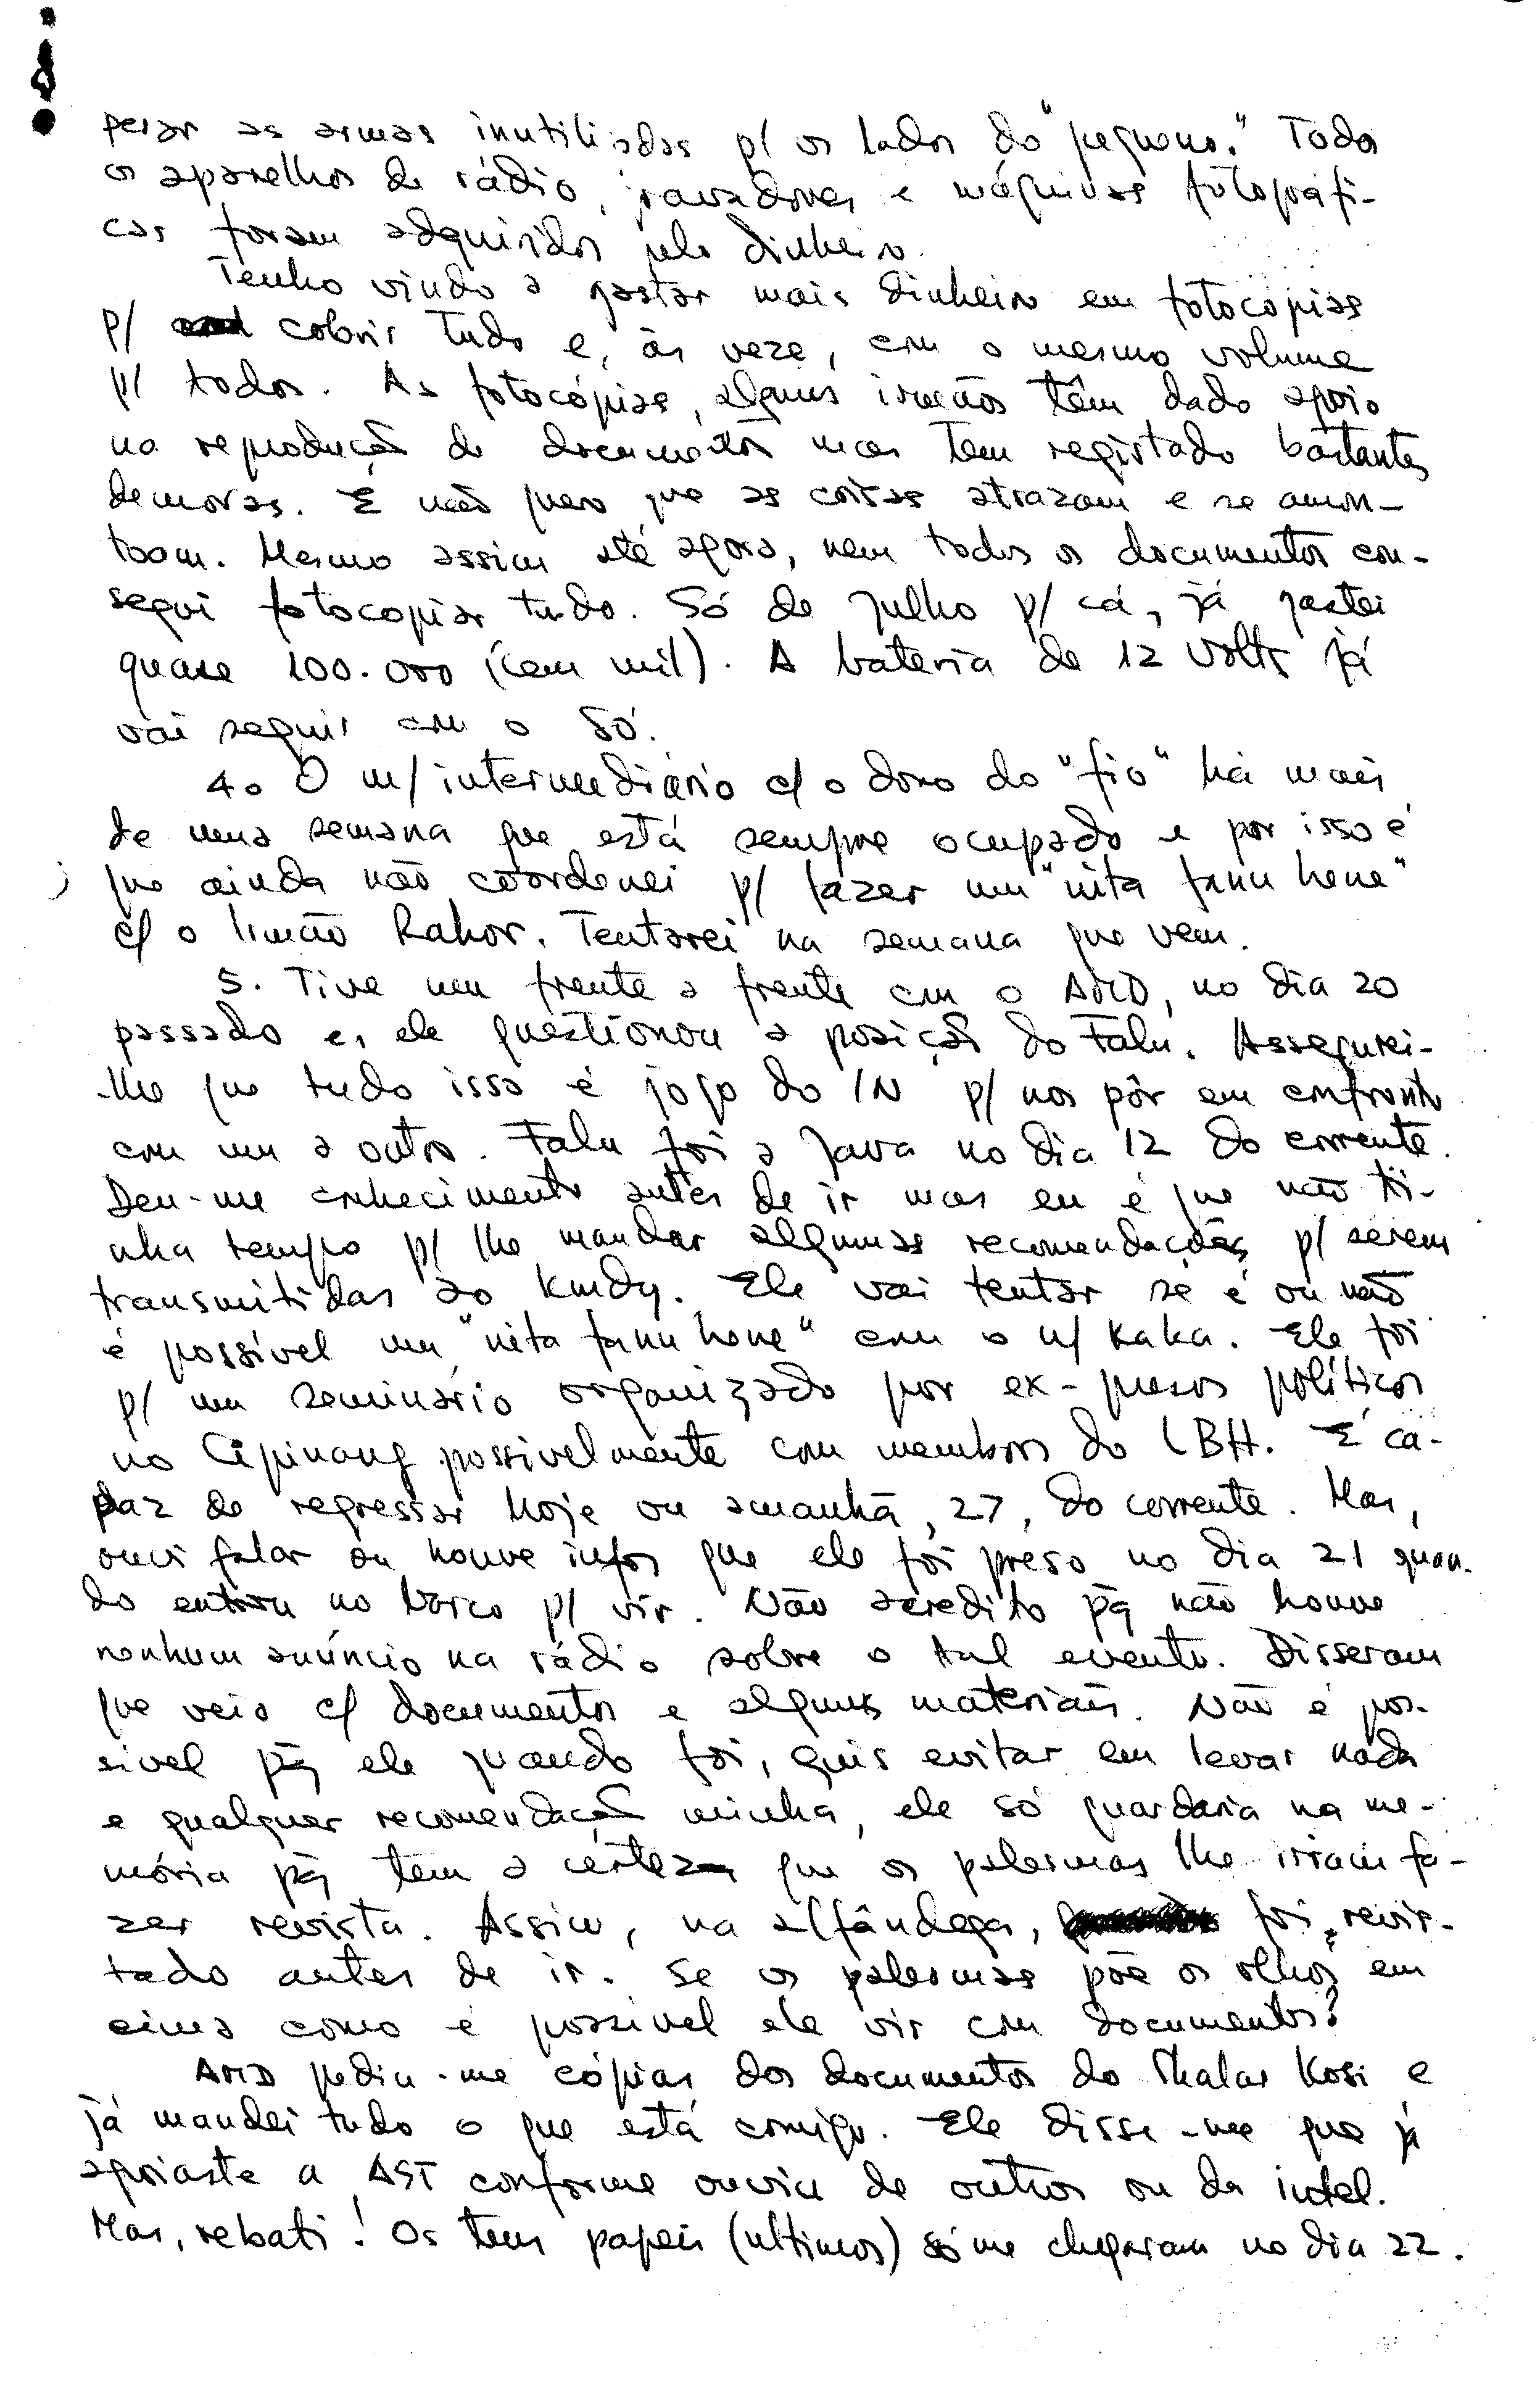 perar as armas inutilizadas p/ os lados do "pequeno." Todos
os aparelhos de rádio, gravadores e máquinas fotográfi-
cas foram adquiridos pelo dinheiro.
Tenho vindo a gastar mais dinheiro em fotocópias
p/ cobrir tudo e, às veze, com o mesmo volume
p/ todos. As fotocópias, alguns irmãos têm dado apoio
na reprodução de documentos mas tem registado bastantes
demoras. E não quero que as coisas atrazam e se amon-
toam. Mesmo assim até agora, nem todos os documentos con-
segui fotocopiar tudo. Só de Julho p/ cá, já gastei
quase 100.000 (cem mil). A bateria de 12 Volts já
vai seguir com o Só.
4. O m/ intermediário c/ o dono do "fio" há mais
de uma semana que está sempre ocupado e por isso é
que ainda não coordenei p/ fazer um "nita fanu hene"
c/ o Irmão Rahor. Tentarei na semana que vem.
5. Tive um frente a frente com o AMD, no dia 20
passado e, ele questionou a posição do Falu. Assegurei-
-lhe que tudo isso é jogo do IN p/ nos pôr em confronto
com um a outro. Falu foi a Java no dia 12 do corrente.
Deu-me conhecimento antes de ir mas eu é que não ti-
nha tempo p/ lhe mandar algumas recomendações p/ serem
transmitidas ao Kmdy. Ele vai tentar se é ou não
é possível um "nita fanu hene" com o n/ Kaka. Ele foi
p/ um seminário organizado por ex-presos políticos
no Cipinang possivelmente com membros do LBH. É ca-
paz de regressar hoje ou amanhã, 27, do corrente. Mas,
ouvi falar ou houve infos que ele foi preso no dia 21 quan-
do entrou no barco p/ vir. Não acredito pq não houve
nenhum anúncio na rádio sobre o tal evento. Disseram
que veio c/ documentos e alguns materiais. Não é pos-
sível pq ele quando foi, quis evitar em levar nada
e qualquer recomendação minha, ele só guardaria na me-
mória pq tem a certeza que os palermas lhe iriam fa-
zer revista. Assim, na alfândega, foi revis-
tado antes de ir. Se os palermas põe os olhos em
cima como é possível ele vir com documentos?
AMD pediu-me cópias dos documentos do Malar Kosi e
já mandei tudo o que está comigo. Ele disse-me que já
apoiaste a AST conforme ouviu de outros ou da intel.
Mas, rebati! Os teus papeis (ultimos) só me chegaram no dia 22.